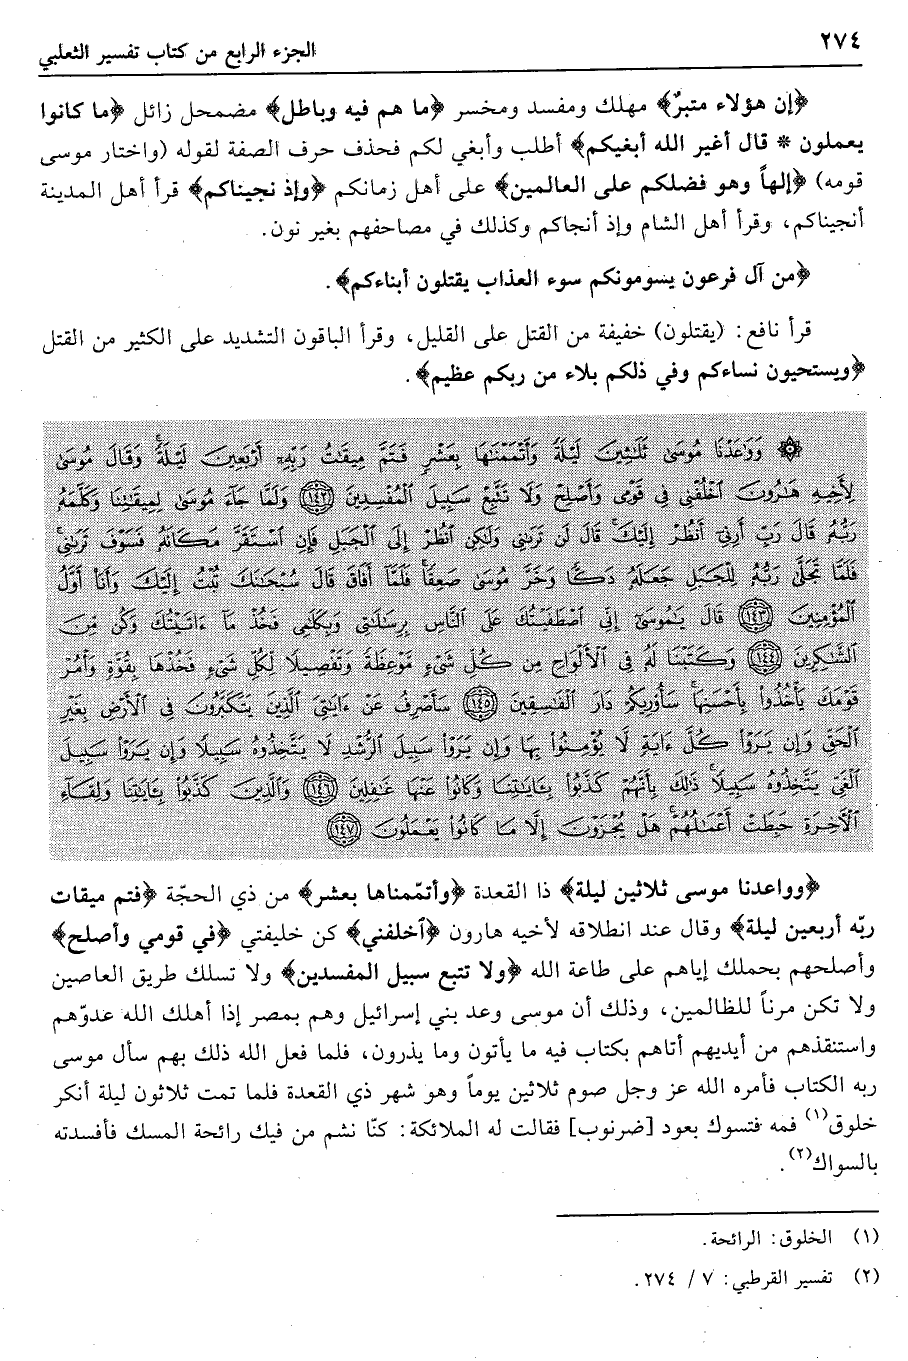 ٢٧٤
الجزء الرابع من كتاب تفسير الثعلبي
﴿إن هؤلاء متبرٌ﴾ مهلك ومفسد ومخسر ﴿ما هم فيه وباطل﴾ مضمحل زائل ﴿ما كانوا
يعملون * قال أغير الله أبغيكم﴾ أطلب وأبغي لكم فحذف حرف الصفة لقوله (واختار موسى
قومه) ﴿إلهاً وهو فضلكم على العالمين﴾ على أهل زمانكم ﴿وإذ نجيناكم﴾ قرأ أهل المدينة
أنجيناكم، وقرأ أهل الشام وإذ أنجاكم وكذلك في مصاحفهم بغير نون.
﴿من آل فرعون يسومونكم سوء العذاب يقتلون أبناءكم﴾.
قرأ نافع: (يقتلون) خفيفة من القتل على القليل، وقرأ الباقون التشديد على الكثير من القتل
﴿ويستحيون نساءكم وفي ذلكم بلاء من ربكم عظيم﴾.
۞ وَوَٰعَدْنَا مُوسَىٰ ثَلَٰثِينَ لَيْلَةً وَأَتْمَمْنَٰهَا بِعَشْرٍ فَتَمَّ مِيقَٰتُ رَبِّهِۦٓ أَرْبَعِينَ لَيْلَةً ۚ وَقَالَ مُوسَىٰ
لِأَخِيهِ هَٰرُونَ ٱخْلُفْنِى فِى قَوْمِى وَأَصْلِحْ وَلَا تَتَّبِعْ سَبِيلَ ٱلْمُفْسِدِينَ ﴿١٤٢﴾ وَلَمَّا جَآءَ مُوسَىٰ لِمِيقَٰتِنَا وَكَلَّمَهُۥ
رَبُّهُۥ قَالَ رَبِّ أَرِنِىٓ أَنظُرْ إِلَيْكَ ۚ قَالَ لَن تَرَىٰنِى وَلَٰكِنِ ٱنظُرْ إِلَى ٱلْجَبَلِ فَإِنِ ٱسْتَقَرَّ مَكَانَهُۥ فَسَوْفَ تَرَىٰنِى ۚ
فَلَمَّا تَجَلَّىٰ رَبُّهُۥ لِلْجَبَلِ جَعَلَهُۥ دَكًّا وَخَرَّ مُوسَىٰ صَعِقًا ۚ فَلَمَّآ أَفَاقَ قَالَ سُبْحَٰنَكَ تُبْتُ إِلَيْكَ وَأَنَا۠ أَوَّلُ
ٱلْمُؤْمِنِينَ ﴿١٤٣﴾ قَالَ يَٰمُوسَىٰٓ إِنِّى ٱصْطَفَيْتُكَ عَلَى ٱلنَّاسِ بِرِسَٰلَٰتِى وَبِكَلَٰمِى فَخُذْ مَآ ءَاتَيْتُكَ وَكُن مِّنَ
ٱلشَّٰكِرِينَ ﴿١٤٤﴾ وَكَتَبْنَا لَهُۥ فِى ٱلْأَلْوَاحِ مِن كُلِّ شَىْءٍ مَّوْعِظَةً وَتَفْصِيلًا لِّكُلِّ شَىْءٍ فَخُذْهَا بِقُوَّةٍ وَأْمُرْ
قَوْمَكَ يَأْخُذُوا۟ بِأَحْسَنِهَا ۚ سَأُو۟رِيكُمْ دَارَ ٱلْفَٰسِقِينَ ﴿١٤٥﴾ سَأَصْرِفُ عَنْ ءَايَٰتِىَ ٱلَّذِينَ يَتَكَبَّرُونَ فِى ٱلْأَرْضِ بِغَيْرِ
ٱلْحَقِّ وَإِن يَرَوْا۟ كُلَّ ءَايَةٍ لَّا يُؤْمِنُوا۟ بِهَا وَإِن يَرَوْا۟ سَبِيلَ ٱلرُّشْدِ لَا يَتَّخِذُوهُ سَبِيلًا وَإِن يَرَوْا۟ سَبِيلَ
ٱلْغَىِّ يَتَّخِذُوهُ سَبِيلًا ۚ ذَٰلِكَ بِأَنَّهُمْ كَذَّبُوا۟ بِـَٔايَٰتِنَا وَكَانُوا۟ عَنْهَا غَٰفِلِينَ ﴿١٤٦﴾ وَٱلَّذِينَ كَذَّبُوا۟ بِـَٔايَٰتِنَا وَلِقَآءِ
ٱلْأَخِرَةِ حَبِطَتْ أَعْمَٰلُهُمْ ۚ هَلْ يُجْزَوْنَ إِلَّا مَا كَانُوا۟ يَعْمَلُونَ ﴿١٤٧﴾
﴿وواعدنا موسى ثلاثين ليلة﴾ ذا القعدة ﴿وأتمّمناها بعشر﴾ من ذي الحجّة ﴿فتم ميقات
ربّه أربعين ليلة﴾ وقال عند انطلاقه لأخيه هارون ﴿أخلفني﴾ كن خليفتي ﴿في قومي وأصلح﴾
وأصلحهم بحملك إياهم على طاعة الله ﴿ولا تتبع سبيل المفسدين﴾ ولا تسلك طريق العاصين
ولا تكن مرناً للظالمين، وذلك أن موسى وعد بني إسرائيل وهم بمصر إذا أهلك الله عدوّهم
واستنقذهم من أيديهم أتاهم بكتاب فيه ما يأتون وما يذرون، فلما فعل الله ذلك بهم سأل موسى
ربه الكتاب فأمره الله عز وجل صوم ثلاثين يوماً وهو شهر ذي القعدة فلما تمت ثلاثون ليلة أنكر
خلوق(١) فمه فتسوك بعود [ضرنوب] فقالت له الملائكة: كنّا نشم من فيك رائحة المسك فأفسدته
بالسواك(٢).
(١) الخلوق: الرائحة.
(٢) تفسير القرطبي: ٧ / ٢٧٤.